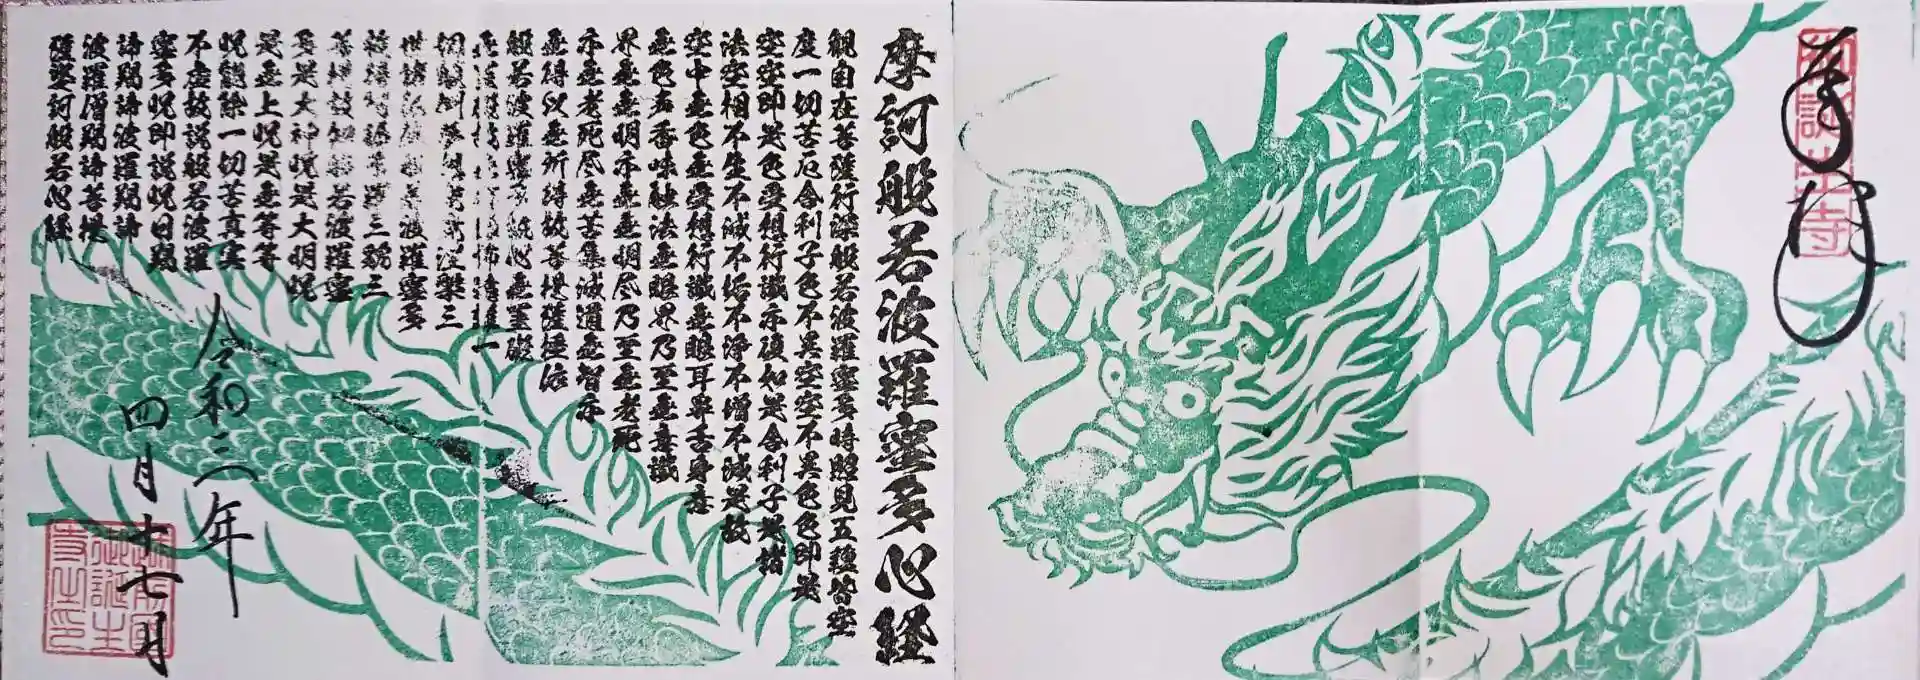 奉拝
御誕生寺
摩訶般若波羅蜜多心経
観自在菩薩行深般若波羅蜜多時照見五蘊皆空
度一切苦厄舎利子色不異空空不異色色即是
空空即是色受想行識亦復如是舎利子是諸
法空相不生不滅不垢不浄不増不減是故
空中無色無受想行識無眼耳鼻舌身意
無色声香味触法無眼界乃至無意識
界無無明亦無無明尽乃至無老死
亦無老死尽無苦集滅道無智亦
無得以無所得故菩提薩埵依
般若波羅蜜多故心無罣礙
無罣礙故無有恐怖遠離一
切顛倒夢想究竟涅槃三
世諸仏依般若波羅蜜多
故得阿耨多羅三藐三
菩提故知般若波羅蜜
多是大神呪是大明呪
是無上呪是無等等
呪能除一切苦真実
不虚故説般若波羅
蜜多呪即説呪曰羯
諦羯諦波羅羯諦
波羅僧羯諦菩提
薩婆訶般若心経
令和三年
四月十七日
越前国
御誕生
寺之印